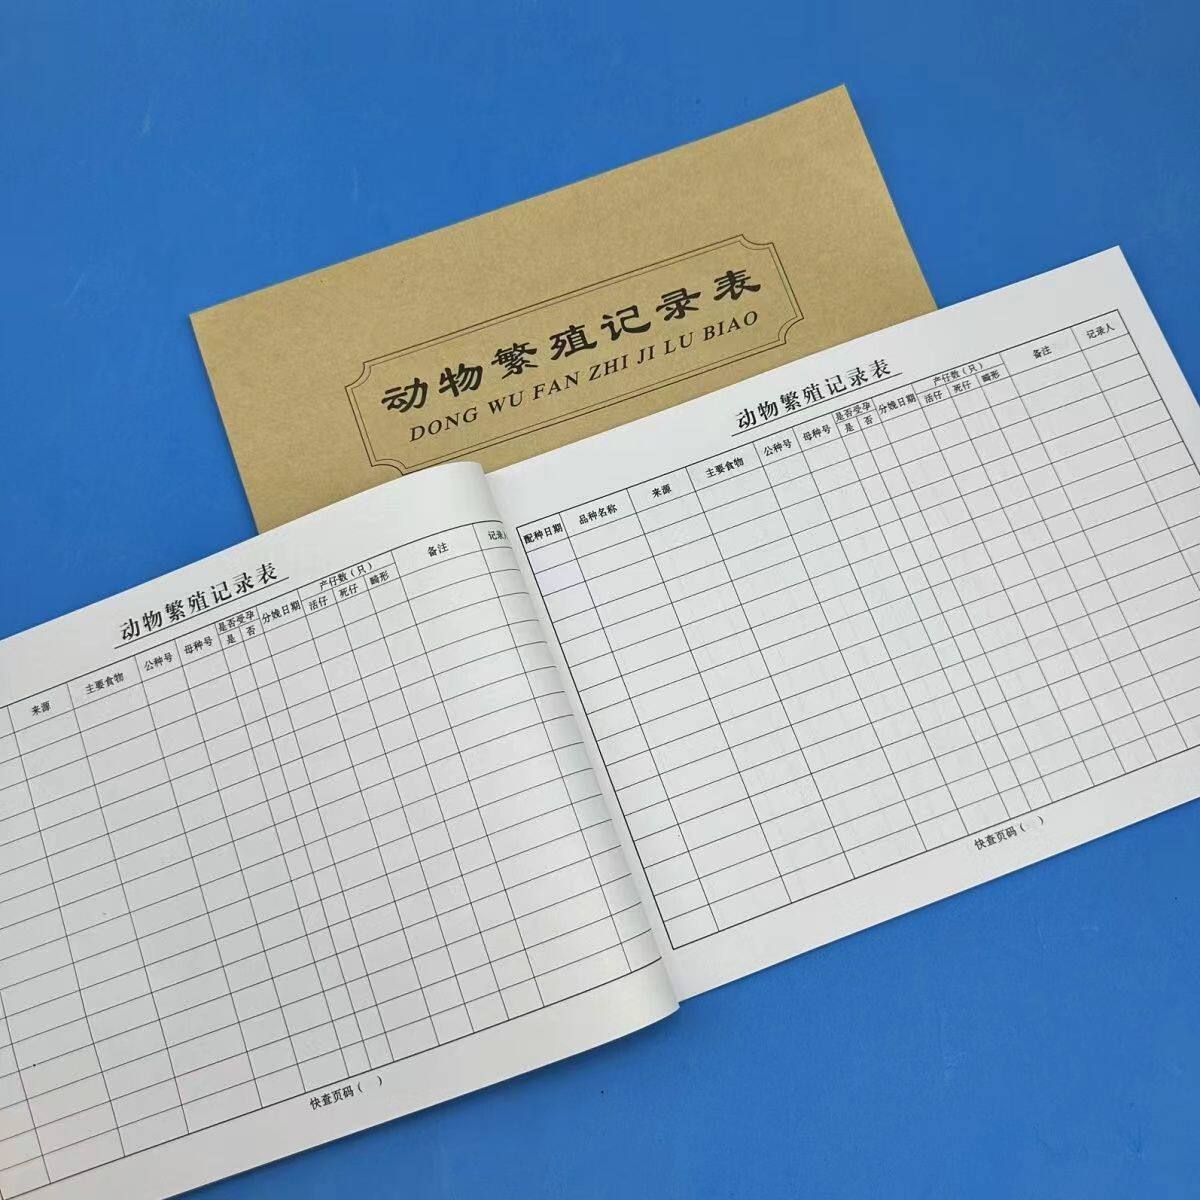 动物繁殖记录表
DONG WU FAN ZHI JI LU BIAO
动物繁殖记录表
来源 主要食物 公种号 母种号 是否受孕 分娩日期 产仔数(只) 备注 记录人
是 否 活仔 死仔 畸形
快查页码( )
动物繁殖记录表
配种日期 品种名称 来源 主要食物 公种号 母种号 是否受孕 分娩日期 产仔数(只) 备注 记录人
是 否 活仔 死仔 畸形
快查页码( )